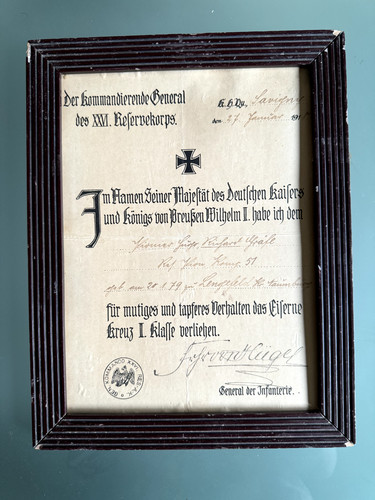 Der Kommandierende General
des XXVI. Reservekorps.
K. H. Qu. Savigny
den 27. Januar 191
Im Namen Seiner Majestät des Deutschen Kaisers
und Königs von Preußen Wilhelm II. habe ich dem
Pionier Richard
Res. Pion. Komp. 51
geb. am 20.1.79 zu Lengefeld
für mutiges und tapferes Verhalten das Eiserne
Kreuz II. Klasse verliehen.
Frhr von Hügel
General der Infanterie.